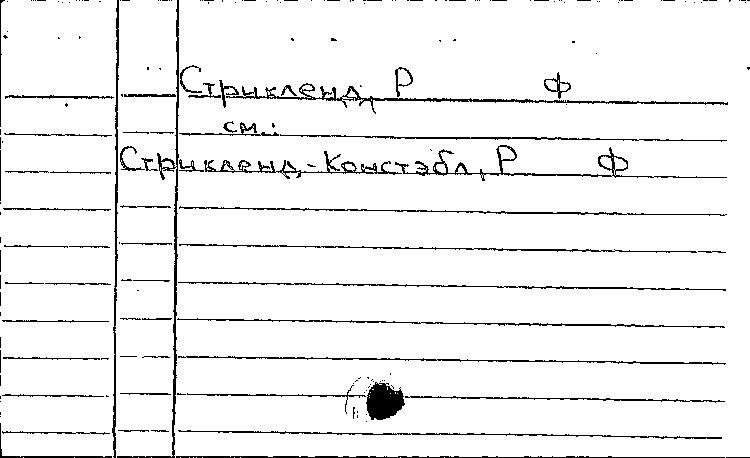 Стрикленд, Р Ф
см.:
Стрикленд-Констэбл, Р Ф